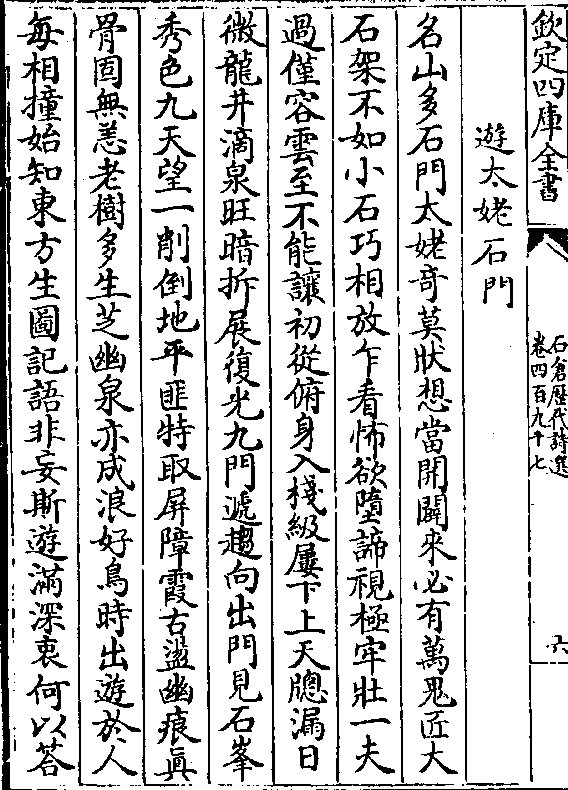 欽定四庫全書
石倉歷代詩選
卷四百九十七
六
遊太姥石門
名山多石門太姥奇莫狀想當開闢來必有萬鬼匠大
石架不如小石巧相放乍看怖欲墮諦視極牢壯一夫
過僅容雲至不能讓初從俯身入棧級屢下上天牕漏日
微龍井滴泉旺暗折展復光九門遞趨向出門見石峯
秀色九天望一削倒地平匪特取屏障霞古盪幽痕眞
骨固無恙老樹多生芝幽泉亦成浪好鳥時出遊於人
每相撞始知東方生圖記語非妄斯遊滿深衷何以答